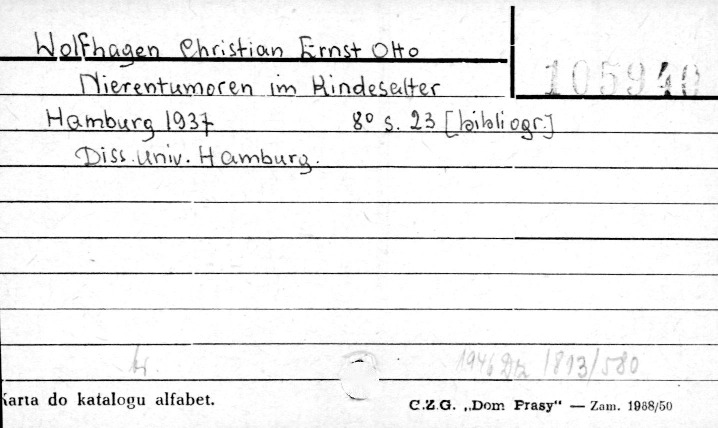 Wolfhagen Christian Ernst Otto
105940
Nierentumoren im Kindesalter
Hamburg 1937 8° s. 23 [bibliogr.]
Diss. Univ. Hamburg.
1946 1813/580
Karta do katalogu alfabet.
C.Z.G. „Dom Prasy" — Zam. 1968/50